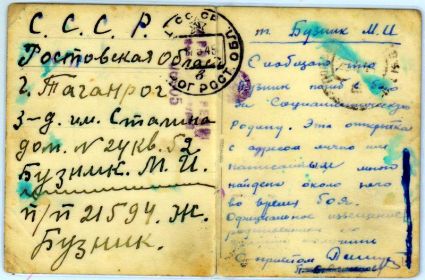 С. С. С. Р.
Ростовская Область
г. Таганрог
з-д. им. Сталина
дом. N 24 кв. 52
Бузник. М. И.
п/п 21594. Ж.
Бузник.
т. Бузник М. И
Сообщаю что
Бузник погиб в бою
за Социалистическую
Родину. Эта открытка
с адресом лично им
написанным мною
найдено около него
во время боя.
Официальное извещение
С приветом